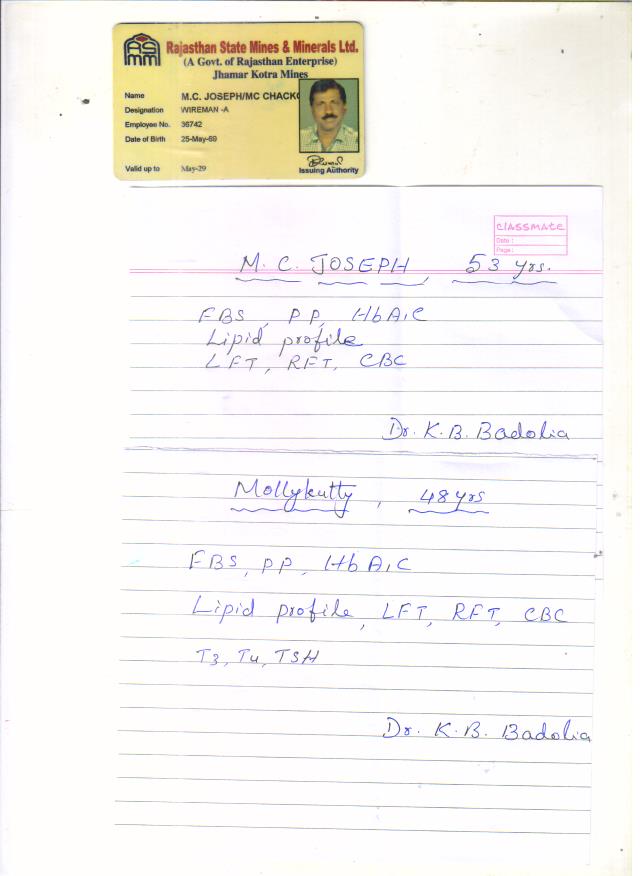 RSMM
Rajasthan State Mines & Minerals Ltd.
(A Govt. of Rajasthan Enterprise)
Jhamar Kotra Mines
Name M.C. JOSEPH/MC CHACKO
Designation WIREMAN -A
Employee No. 36742
Date of Birth 25-May-69
Valid up to May-29
Issuing Authority
CLASSMATE
Date :
Page :
M. C. JOSEPH, 53 yrs.
FBS, PP, HbA1C
Lipid profile
LFT, RFT, CBC
Dr. K. B. Badolia
Mollykutty, 48 yrs
FBS, PP, HbA1C
Lipid profile, LFT, RFT, CBC
T3, T4, TSH
Dr. K. B. Badolia